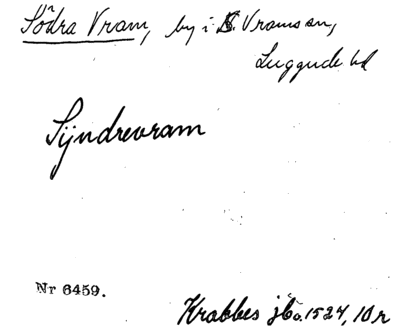 Södra Vram, by i S. Vrams sn,
Luggude hd
Sÿndrevram
Nr 6459.
Krabbes jb o. 1524, 10 r